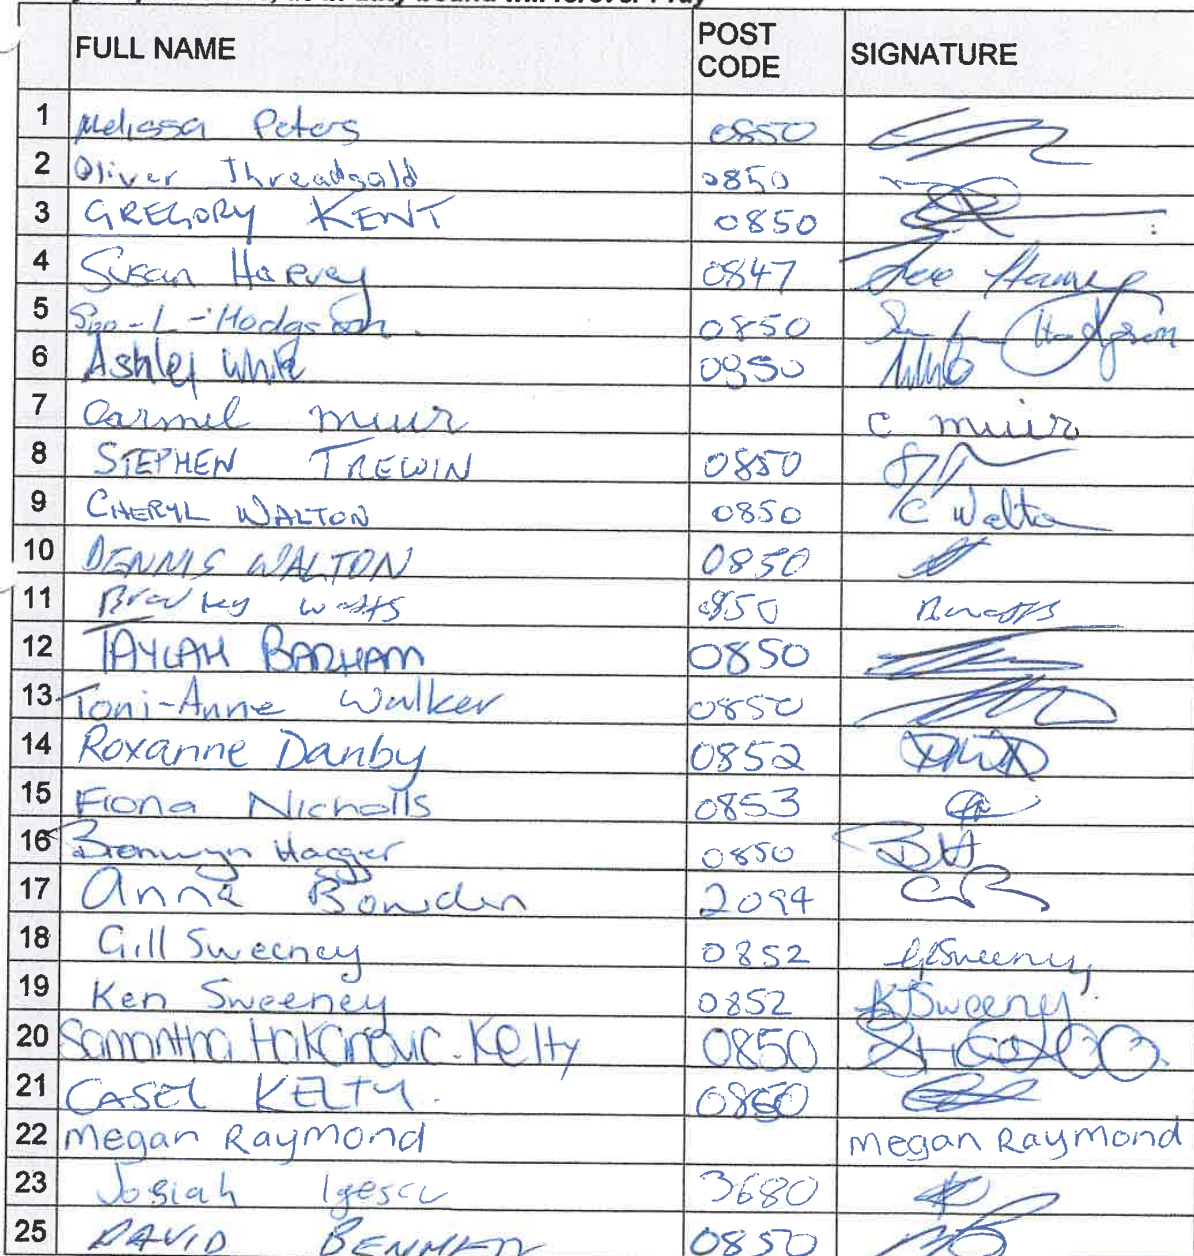 will forever Pray
FULL NAME POST CODE SIGNATURE
1 Melissa Peters 0850
2 Oliver Threadgold 0850
3 GREGORY KENT 0850
4 Susan Harvey 0847 Sue Harvey
5 Hodgson 0850 Hodgson
6 Ashley White 0850
7 Carmel muir c muir
8 STEPHEN TREWIN 0850
9 CHERYL WALTON 0850 C Walton
10 DENNIS WALTON 0850
11 Bradley Watts 0850 B Watts
12 TAYLAH BARHAM 0850
13 Toni-Anne Walker 0850
14 Roxanne Danby 0852
15 Fiona Nicholls 0853
16 Bronwyn Hagger 0850 BH
17 Anna Bowden 2094
18 Gill Sweeney 0852 Sweeney
19 Ken Sweeney 0852 K Sweeney
20 Samantha Kelty 0850
21 CASEY KELTY. 0850
22 Megan Raymond Megan Raymond
23 Josiah 3680
25 DAVID 0850